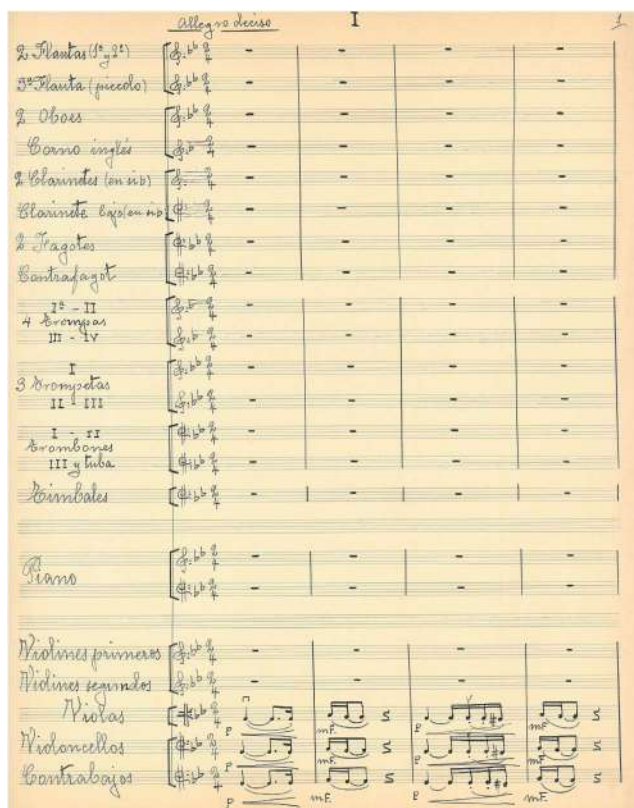 Allegro deciso I 1
2 Flautas (1ª y 2ª)
3ª Flauta (piccolo)
2 Oboes
Corno inglés
2 Clarinetes (en sib)
Clarinete bajo (en sib)
2 Fagotes
Contrafagot
Iª - II
4 Trompas
III - IV
I
3 Trompetas
II - III
I - II
Trombones
III y tuba
Timbales
Piano
Violines primeros
Violines segundos
Violas
p mF. p mF.
Violoncellos
p mF. p mF.
Contrabajos
p mF. p mF.